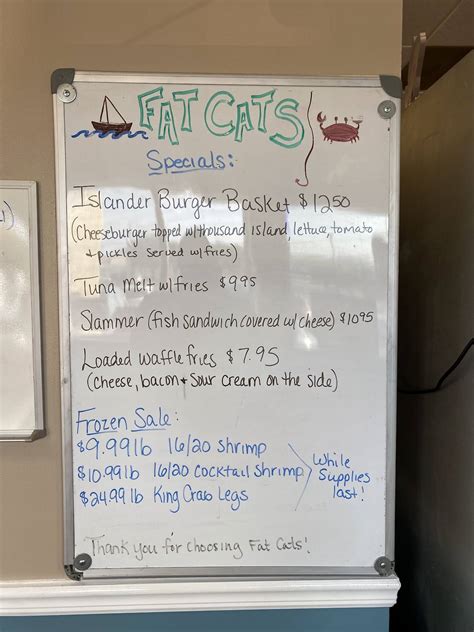 FAT CATS
Specials:
Islander Burger Basket $1250
(Cheeseburger topped w/thousand island, lettuce, tomato
+ pickles served w/fries)
Tuna Melt w/fries $995
Slammer (fish sandwich covered w/ cheese) $1095
Loaded waffle fries $7.95
(cheese, bacon + sour cream on the side)
Frozen Sale:
$9.99lb 16/20 shrimp
$10.99lb 16/20 cocktail shrimp
$24.99 lb King Crab Legs
While
Supplies
last!
Thank you for choosing Fat Cats!